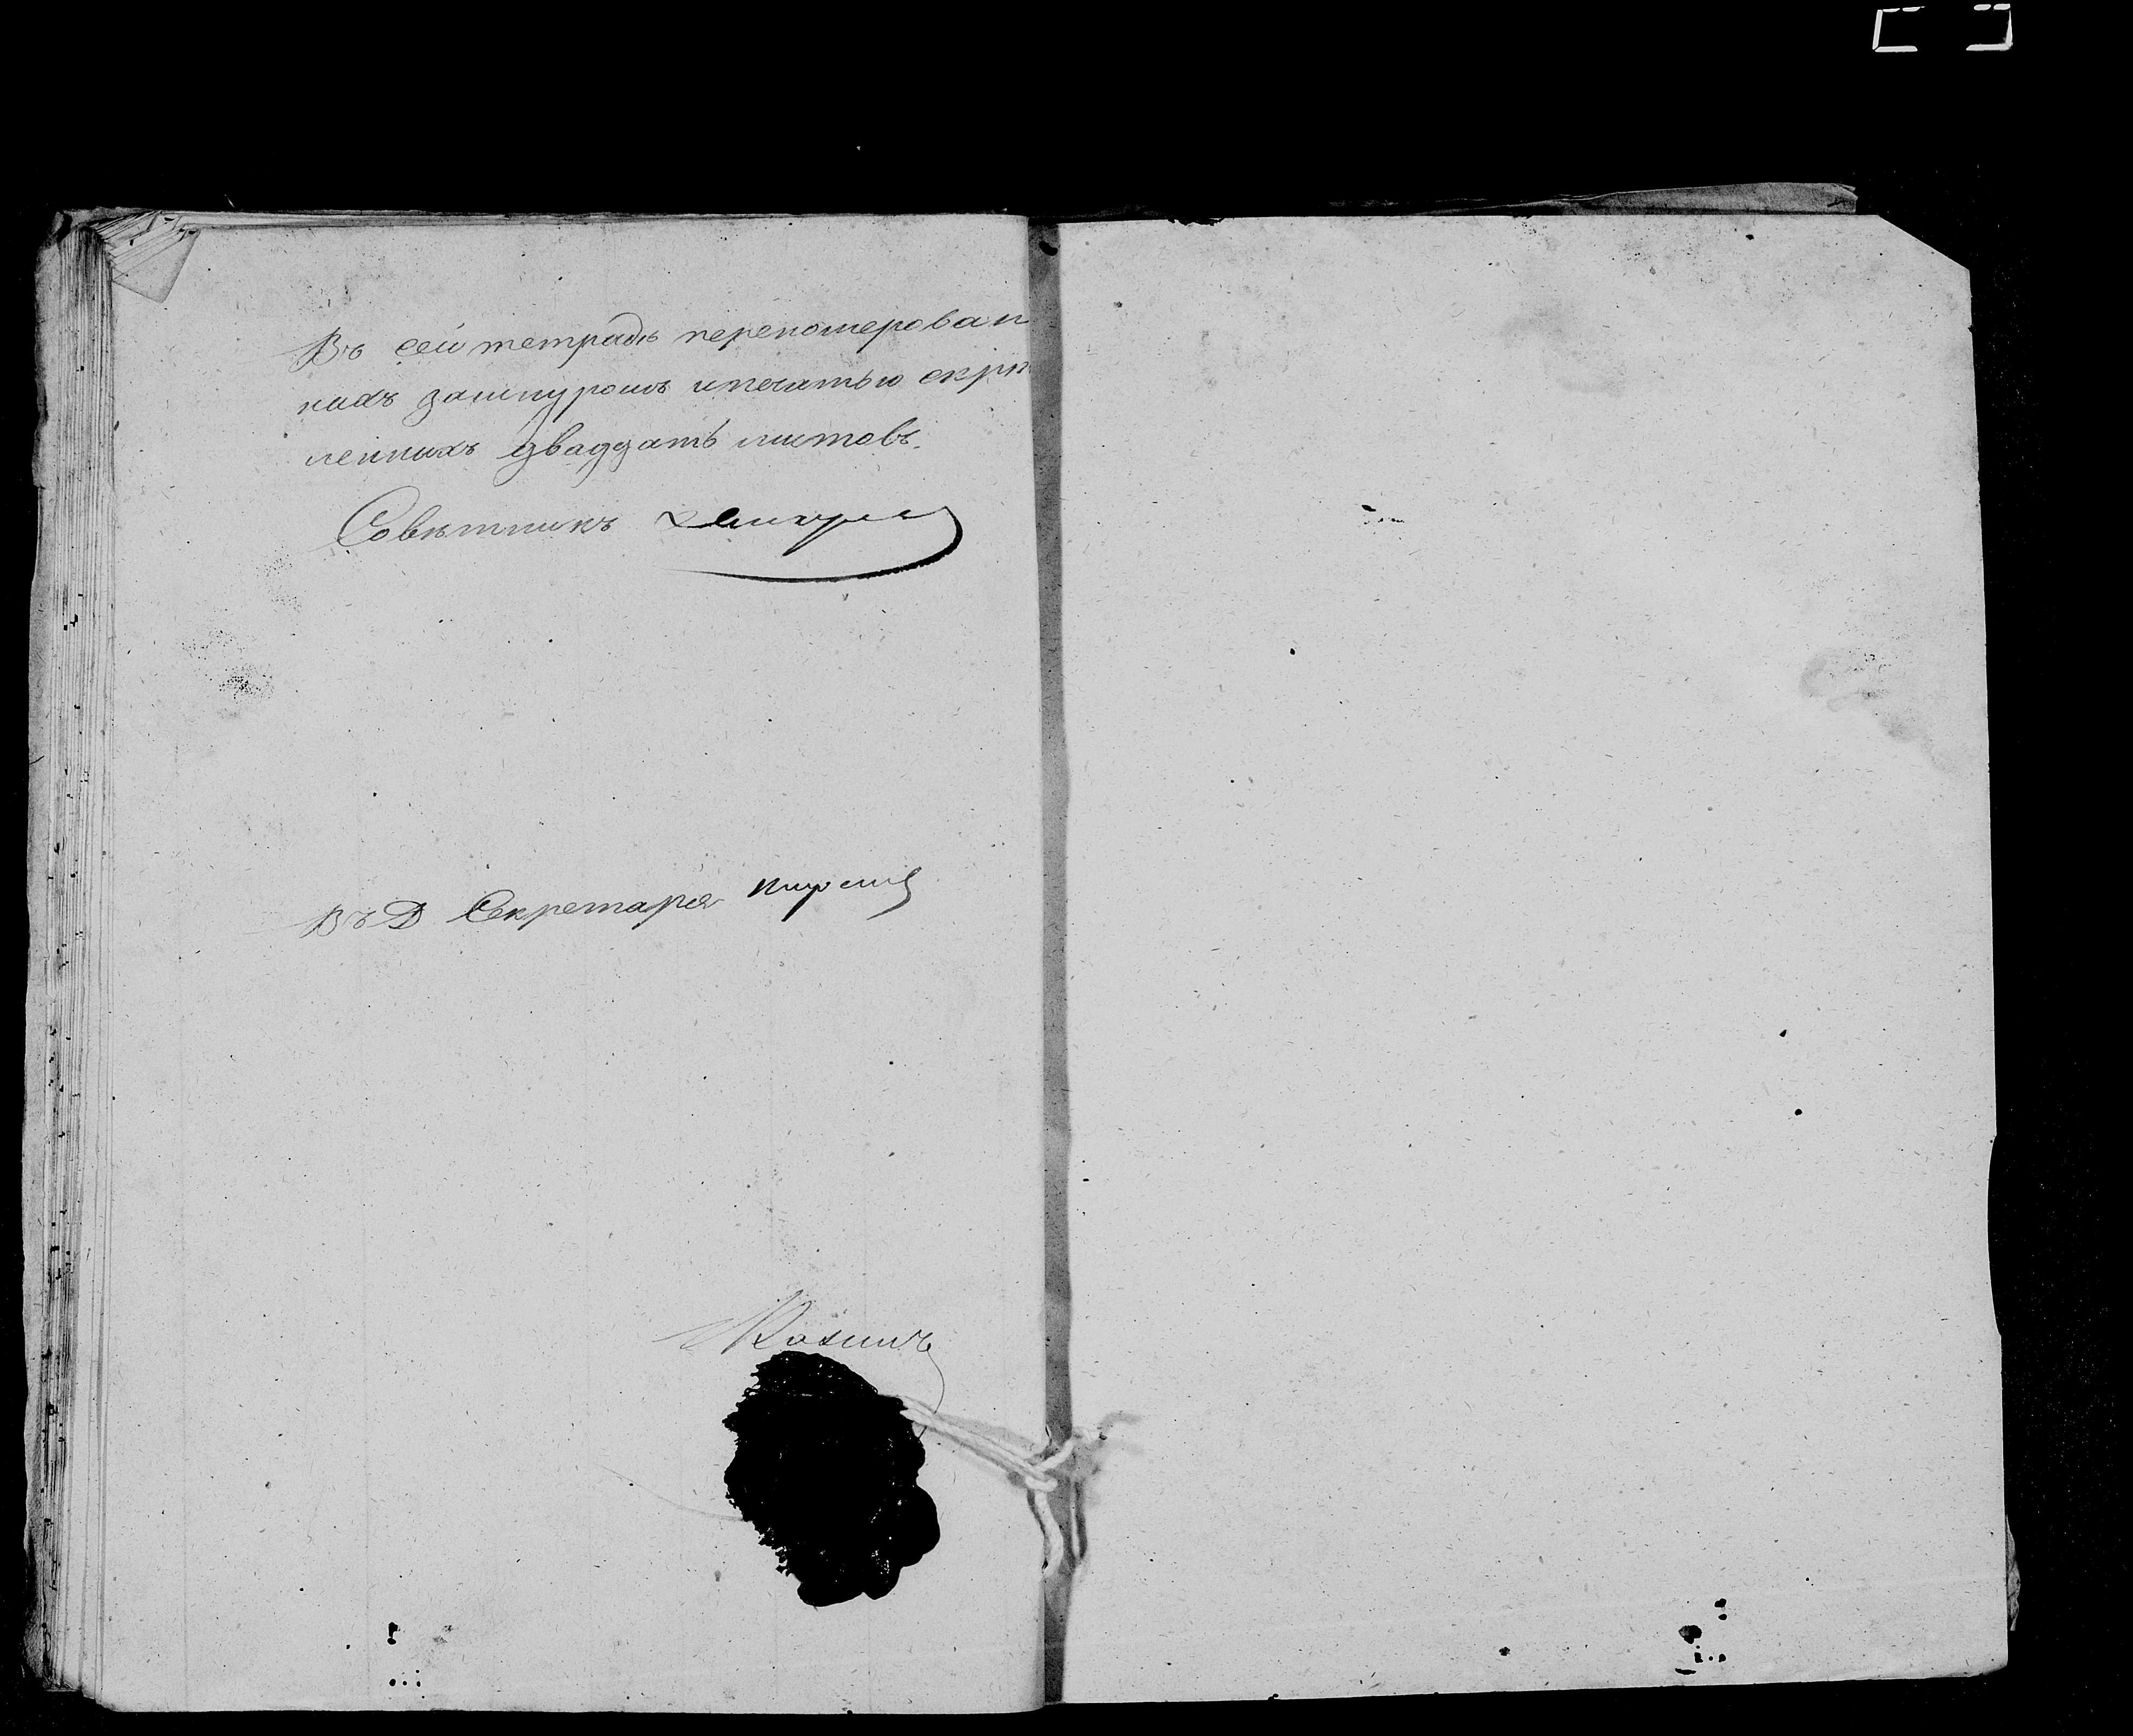 Въ сей тетрадѣ переномерован
ныхъ зашнуромъ ипечатью скрѣп
ленныхъ двадцать листовъ.
Совѣтникъ
Въ Д Секретаря